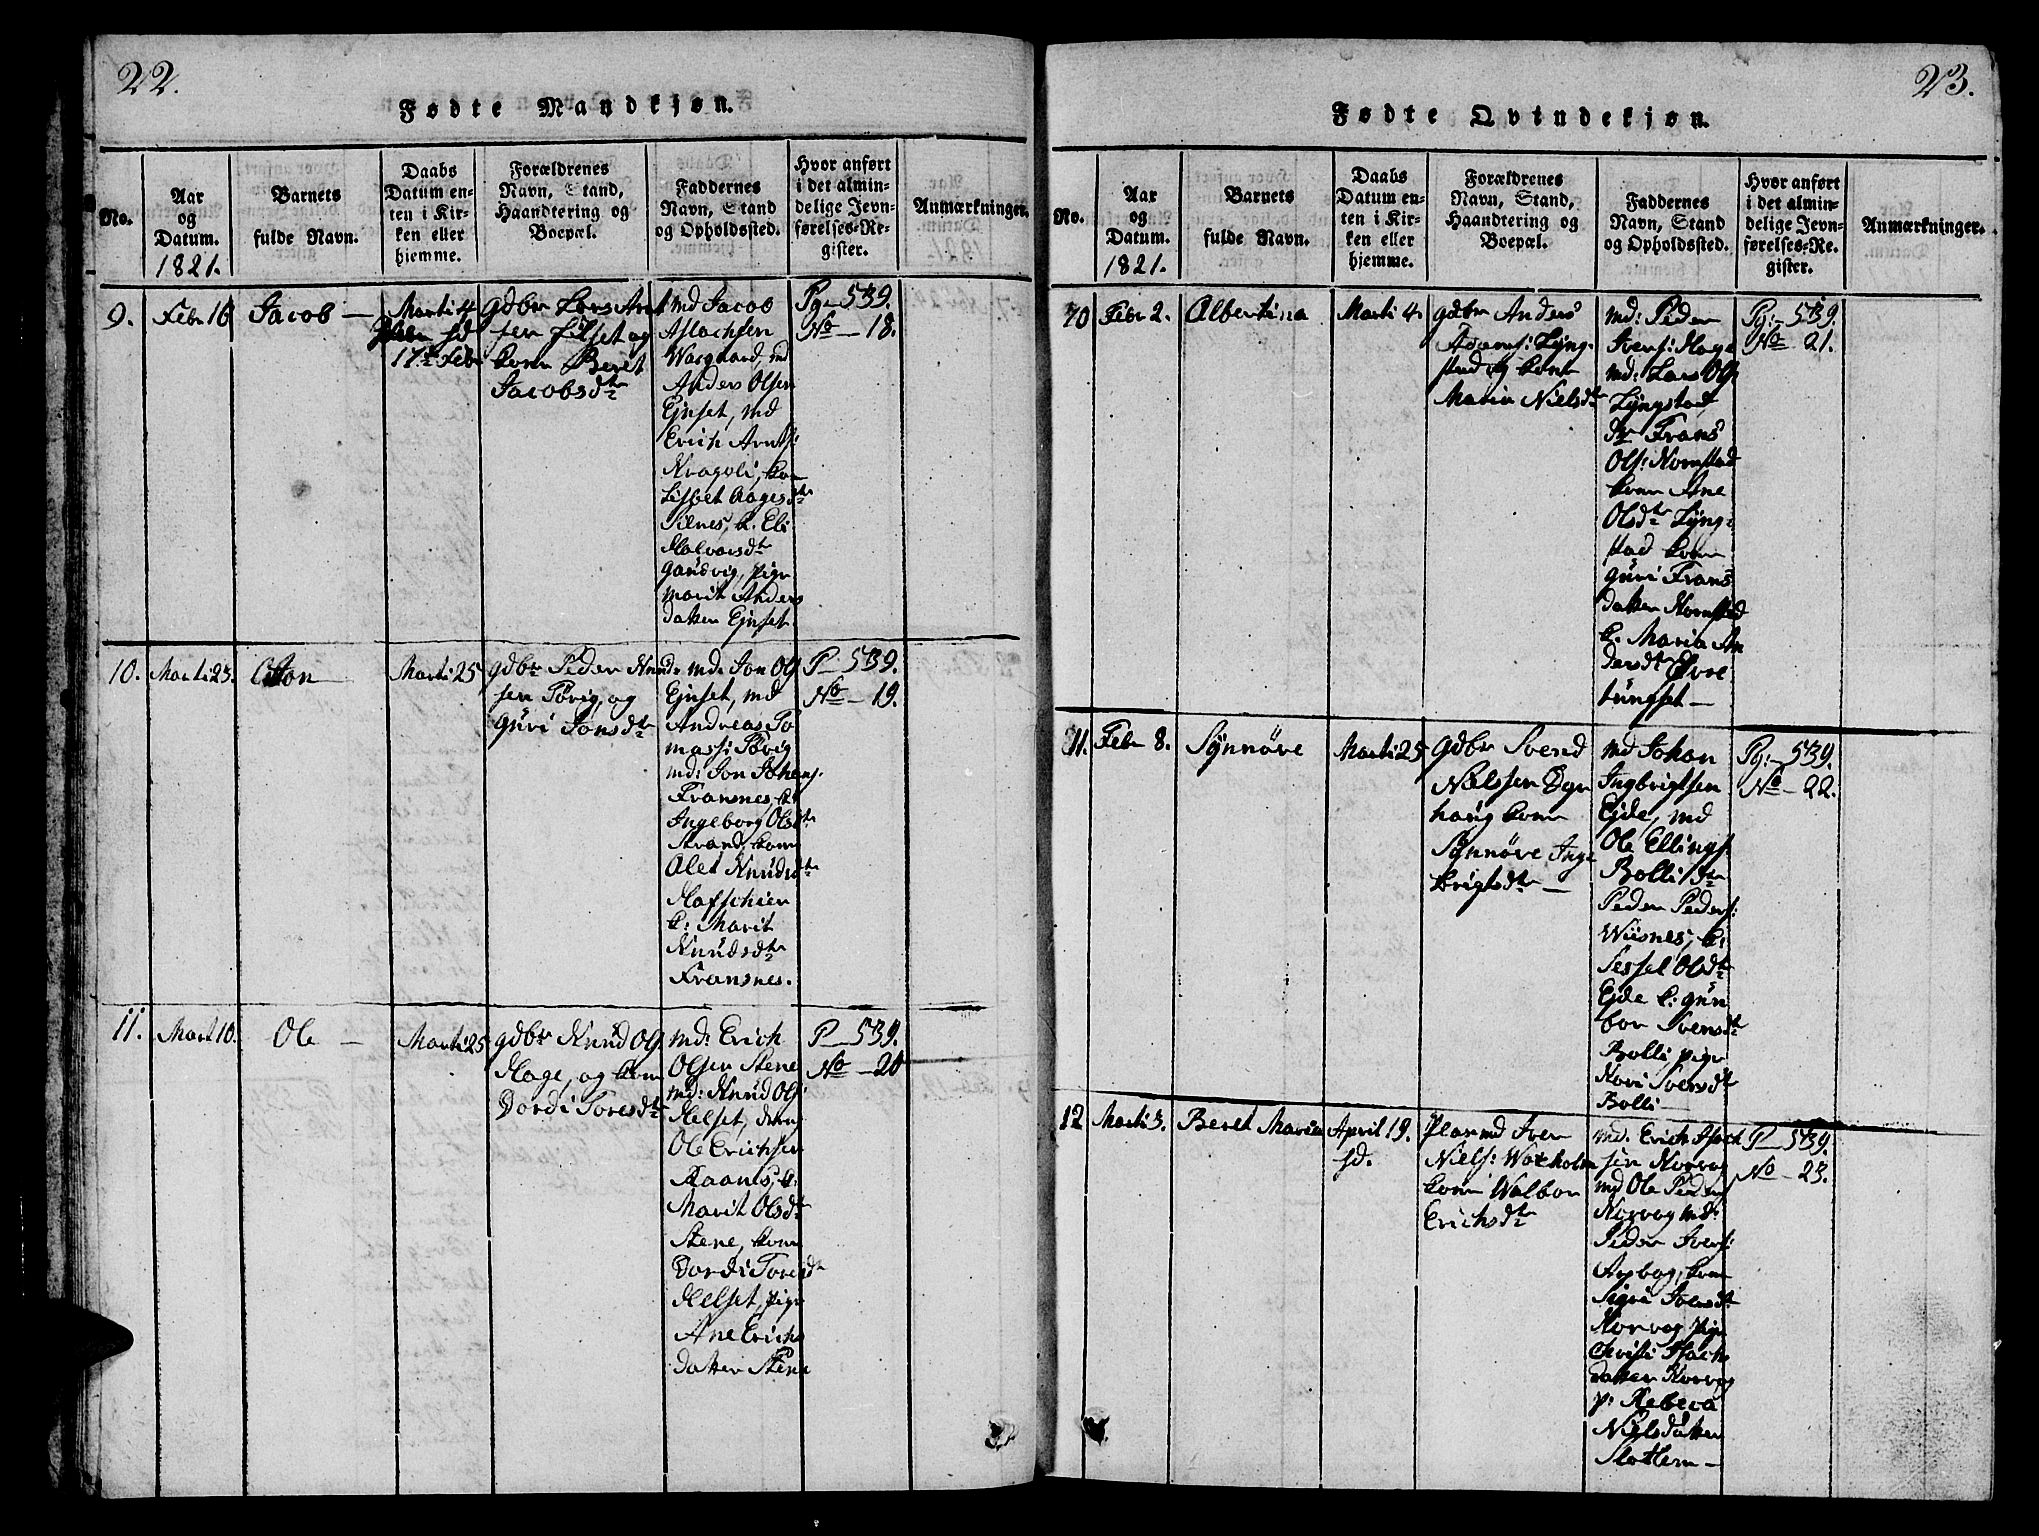 22.
Fødte Mandkjøn.
No.
Aar
og
Datum.
1821.
Barnets
fulde Navn.
Daabs
Datum en-
ten i Kir-
ken eller
hjemme.
Forældrenes
Navn, Stand,
Haandtering og
Boepæl.
Faddernes
Navn, Stand
og Opholdssted.
Hvor anført
i det almin-
delige Jevn-
førelses-Re-
gister.
Anmærkninger.
9.
Febr 16
Jacob —
Marti 4
sd
17de Febr
gdbr Lars Arnt
sen Eilset og
kone Beret
Jacobsdtr
md Jacob
Aslachsen
Waagaard, md
Anders Olsen
Ejnset, md
Erich Arnts:
Kragoli, kone
Lisbet Aagesdtr
Silnes, k. Eli
Halvorsdtr
Gandvig, pige
Marit Anders
datter Ejnset
Pg — 539.
No — 18.
10.
Marti 23.
Marti 25
gdbr Peder Knud
sen Torvig, og
Guri Jonsdtr
md: Jon Ols
Ejnset, md
Andreas To
mass: Torvig
md: Jon Johans:
Fransnes, k:
Ingeborg Olsdtr
Strand, kone
Olet Knudsdtr
Hafschier
k: Marit
Knudsdtr
Fransnes.
P — 539.
No — 19.
11.
Mart 10.
Ole —
Marti 25
gdbr Knud Ols
Hage, og kone
Dordi Toresdtr
md: Erich
Olsen Stene
md: Knud Ols
Helset, dreng
Ole Erichsen
Raanes, k:
Marit Olsdtr
Stene, kone
Dordi Toresdtr
Helset, pige
Ane Erichs
datter Stene
P — 539.
No — 20
23.
Fødte Qvindekjøn.
No.
Aar
og
Datum.
1821.
Barnets
fulde Navn.
Daabs
Datum en-
ten i Kir-
ken eller
hjemme.
Forældrenes
Navn, Stand,
Haandtering og
Boepæl.
Faddernes
Navn, Stand
og Opholdssted.
Hvor anført
i det almin-
delige Jevn-
førelses-Re-
gister.
Anmærkninger.
10
Febr 2.
Albertina
Marti 4.
gdbr Anders
Adams: Lyng-
stad og kone
Maria Nielsdtr
md: Peder
Ivers: Hage
md: Lars Ols
Lyngstad
dr Frans
Ols: Nornstad
kone Ane
Olsdtr Lyng-
stad kone
Guri Frans
datter Nornstad
k. Maria An
dersdtr Øvre
tungset —
Pg: — 539.
No 21.
11.
Febr 8.
Synnöve
Marti 25
gdbr Svend
Nielssen Dyr
haug kone
Synnöve Inge
brigtsdtr —
md Johan
Ingbrigtsen
Ejde, md
Ole Ellings:
Bolli
Peder Peders:
Wiisnes, k:
Sessel Olsdtr
Ejde k: Gun
bor Svensdtr
Bolli pige
Kari Iversdtr
Bolli —
Pg: — 539.
No — 22.
12
Marti 3.
Beret Maria
April 19.
sd.
Plasmd Iver
Niels: Waxholm
kone Walbor
Erichsdtr
md. Erich Isach
sen Norvog
md Ole Peders
Norvog md:
Peder Ivers:
Arsbog, kone
Sigri Iversdtr
Norvog pige
Christi Isachs
datter Norvog
p: Rebeca
Nielsdatter
Slatlem —
P — 539.
No — 23.